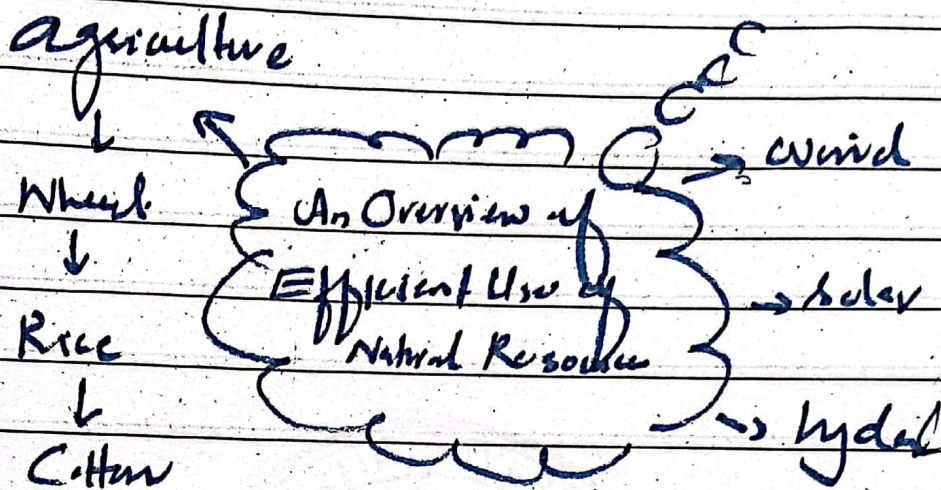 agriculture
↓
Wheat
↓
Rice
↓
Cotton
An Overview of
Efficient Use of
Natural Resource
→ wind
→ solar
→ hydel